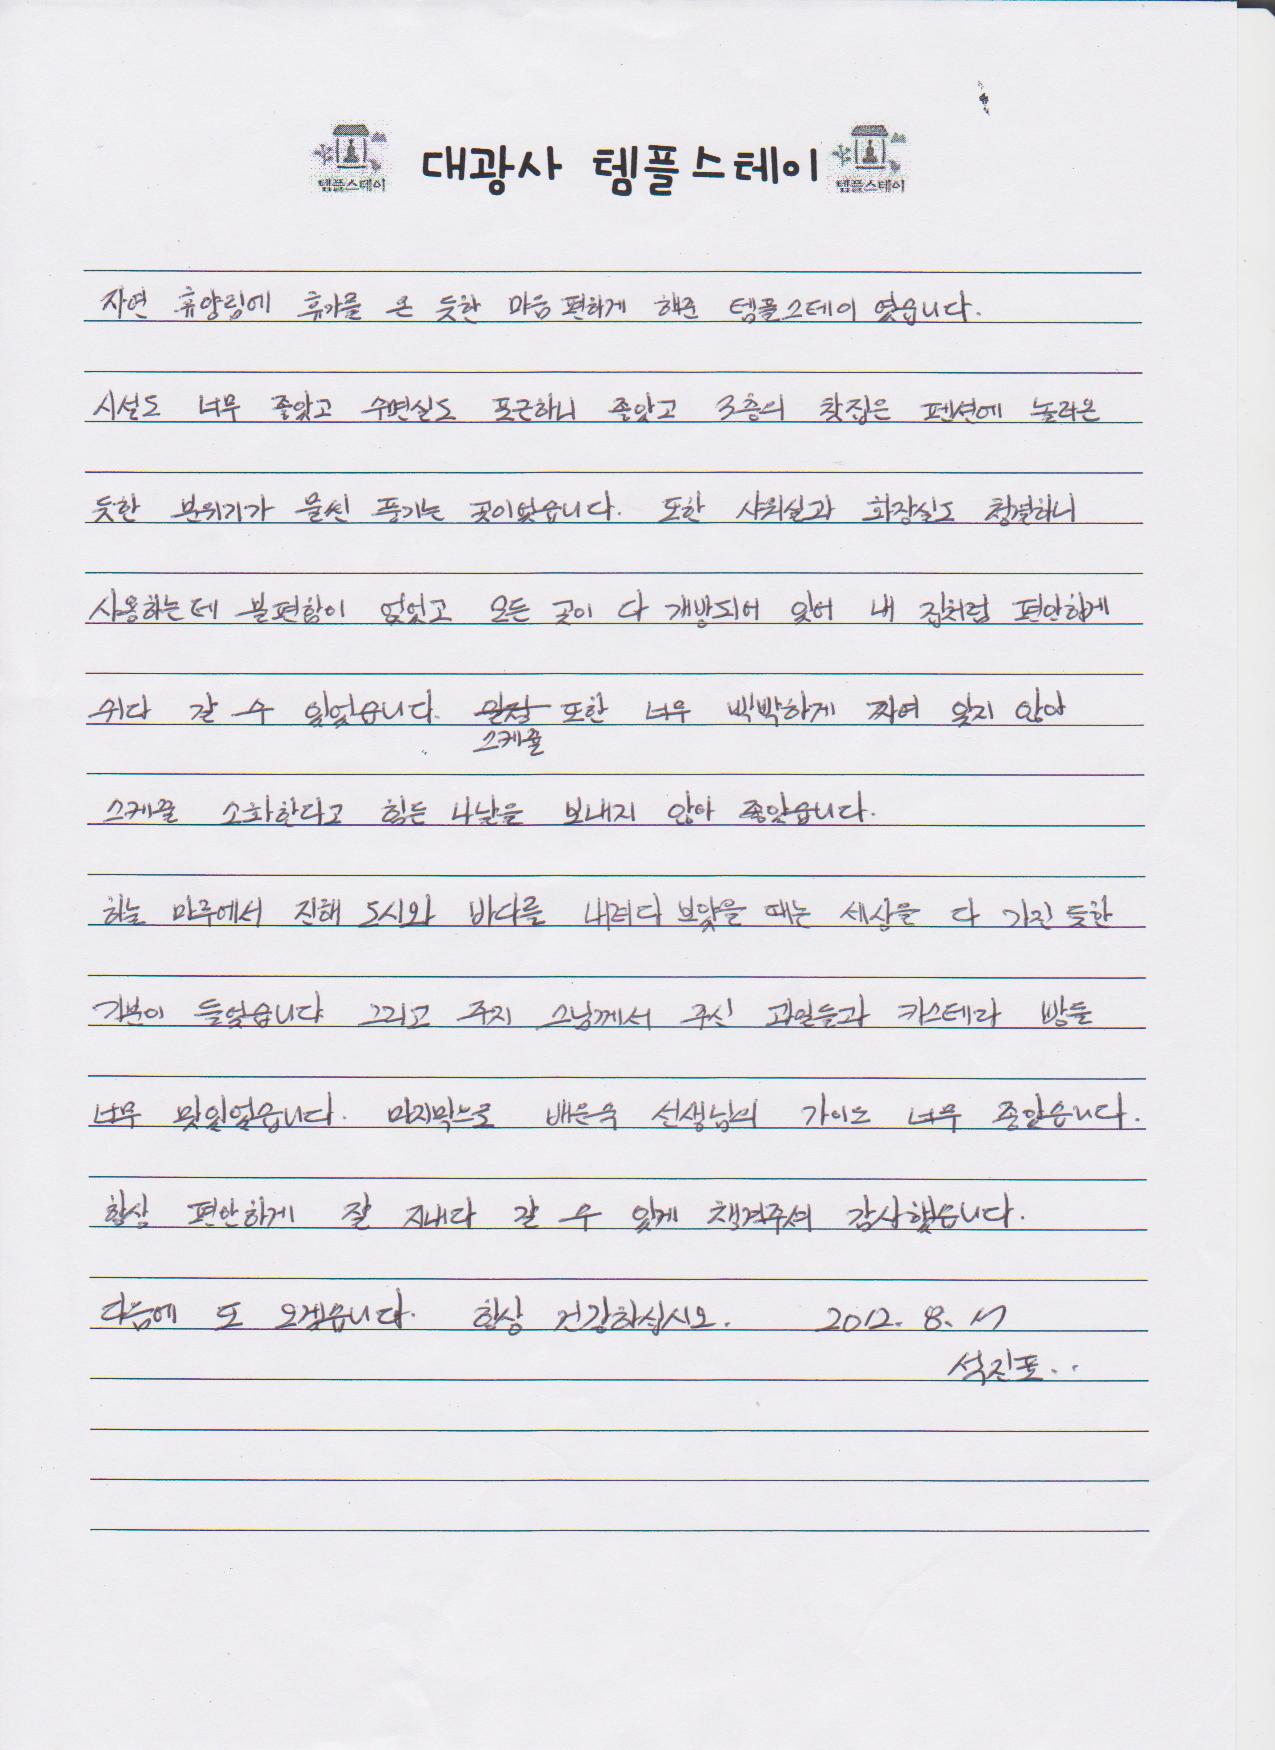 템플스테이 대광사 템플스테이 템플스테이
자연 휴양림에 휴가를 온 듯한 마음 편하게 해준 템플스테이 였습니다.
시설도 너무 좋았고 수면실도 포근하니 좋았고 3층의 찻집은 펜션에 놀러온
듯한 분위기가 물씬 풍기는 곳이었습니다. 또한 샤워실과 화장실도 청결하니
사용하는데 불편함이 없었고 모든 곳이 다 개방되어 있어 내 집처럼 편안하게
쉬다 갈 수 있었습니다. 일정 또한 너무 빡빡하게 짜여 있지 않아
스케쥴
스케쥴 소화한다고 힘든 나날을 보내지 않아 좋았습니다.
하늘 마루에서 진해 도시와 바다를 내려다 보았을 때는 세상을 다 가진 듯한
기분이 들었습니다 그리고 주지 스님께서 주신 과일들과 카스테라 빵들
너무 맛있었습니다. 마지막으로 배은숙 선생님의 가이드 너무 좋았습니다.
항상 편안하게 잘 지내다 갈 수 있게 챙겨주셔 감사했습니다.
다음에 또 오겠습니다. 항상 건강하십시오. 2012. 8. 17
석진포..